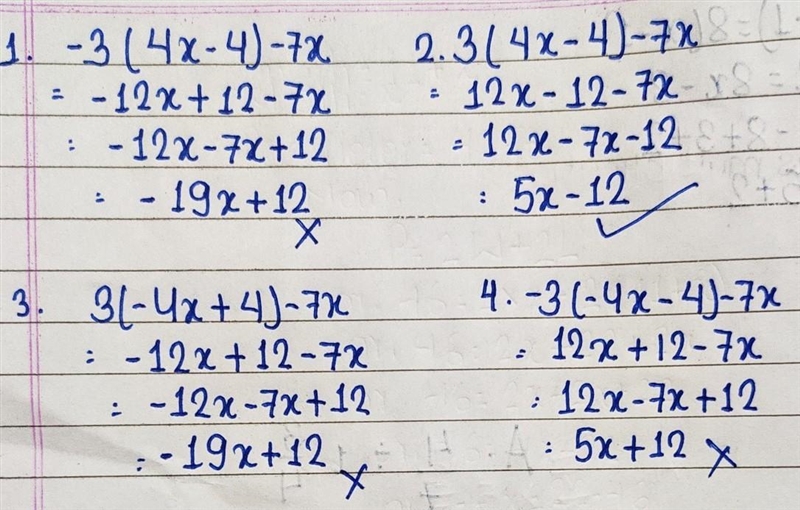 1. -3(4x-4)-7x
= -12x+12-7x
: -12x-7x+12
= -19x+12
x
2. 3(4x-4)-7x
= 12x-12-7x
= 12x-7x-12
: 5x-12
✓
3. 3(-4x+4)-7x
: -12x+12-7x
: -12x-7x+12
: -19x+12 x
4. -3(-4x-4)-7x
: 12x+12-7x
: 12x-7x+12
: 5x+12 x